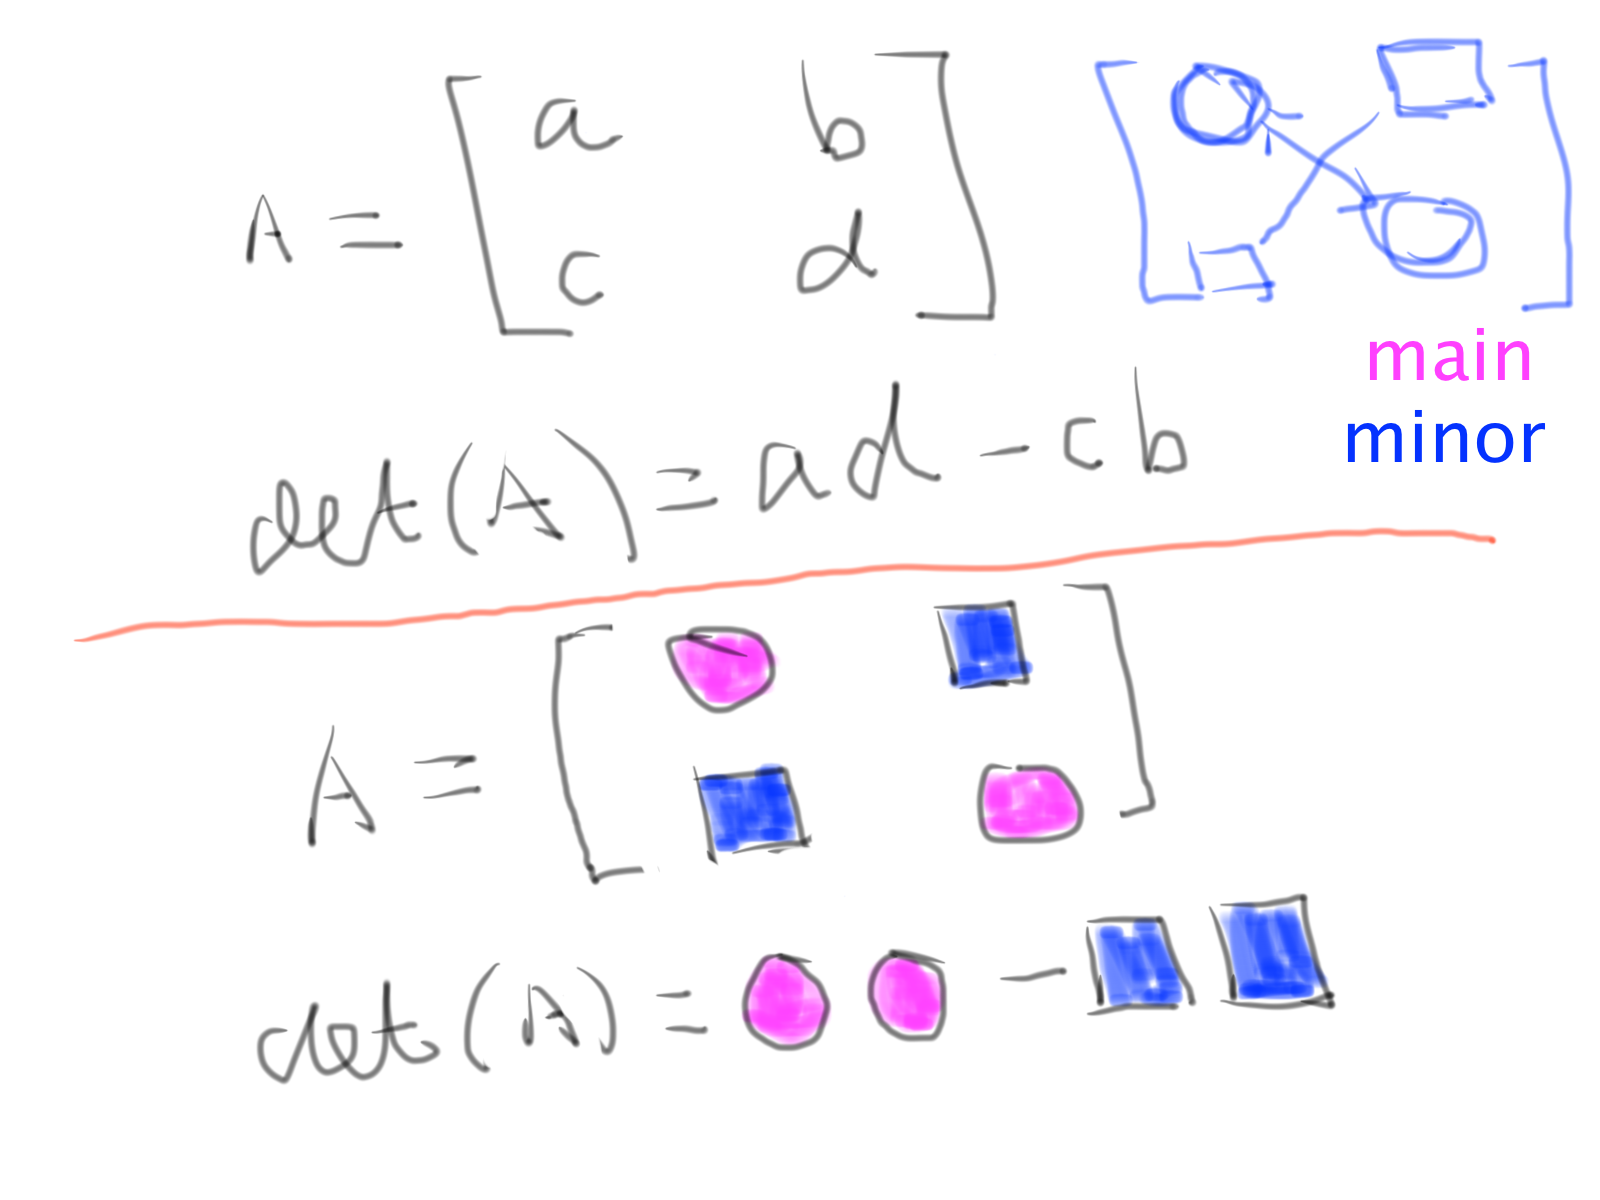 A = [ a b
c d ]
main
minor
det(A) = ad - cb
A = [ ]
det(A) = -